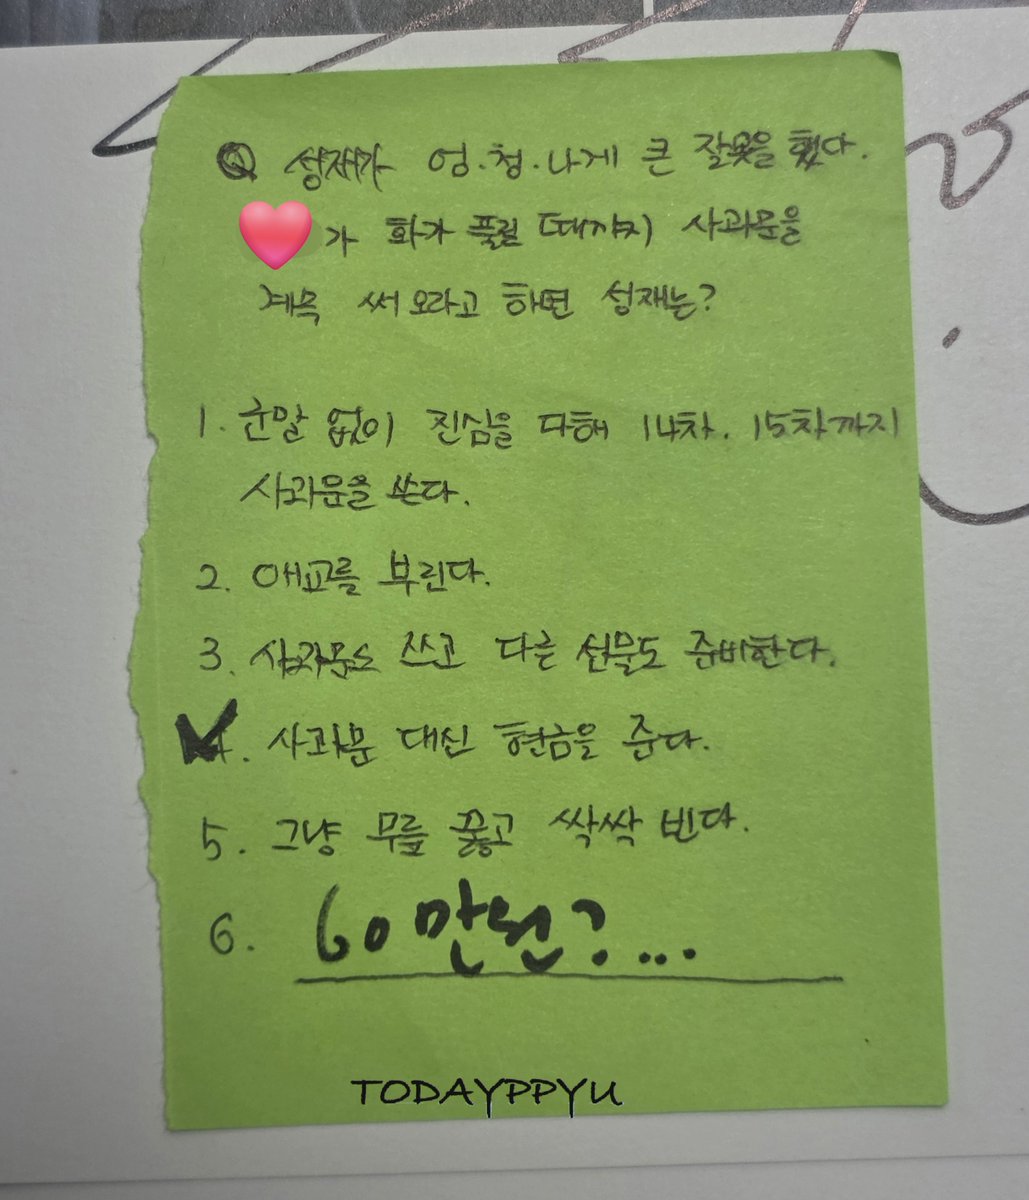 Q 성재가 엉.청.나게 큰 잘못을 했다.
가 화가 풀릴 때까지 사과문을
계속 써 오라고 하면 성재는?
1. 군말 없이 진심을 다해 14차. 15차까지
사과문을 쓴다.
2. 애교를 부린다.
3. 사과문도 쓰고 다른 선물도 준비한다.
4. 사과문 대신 현금을 준다.
5. 그냥 무릎 꿇고 싹싹 빈다.
6. 60만원?...
TODAYPPYU